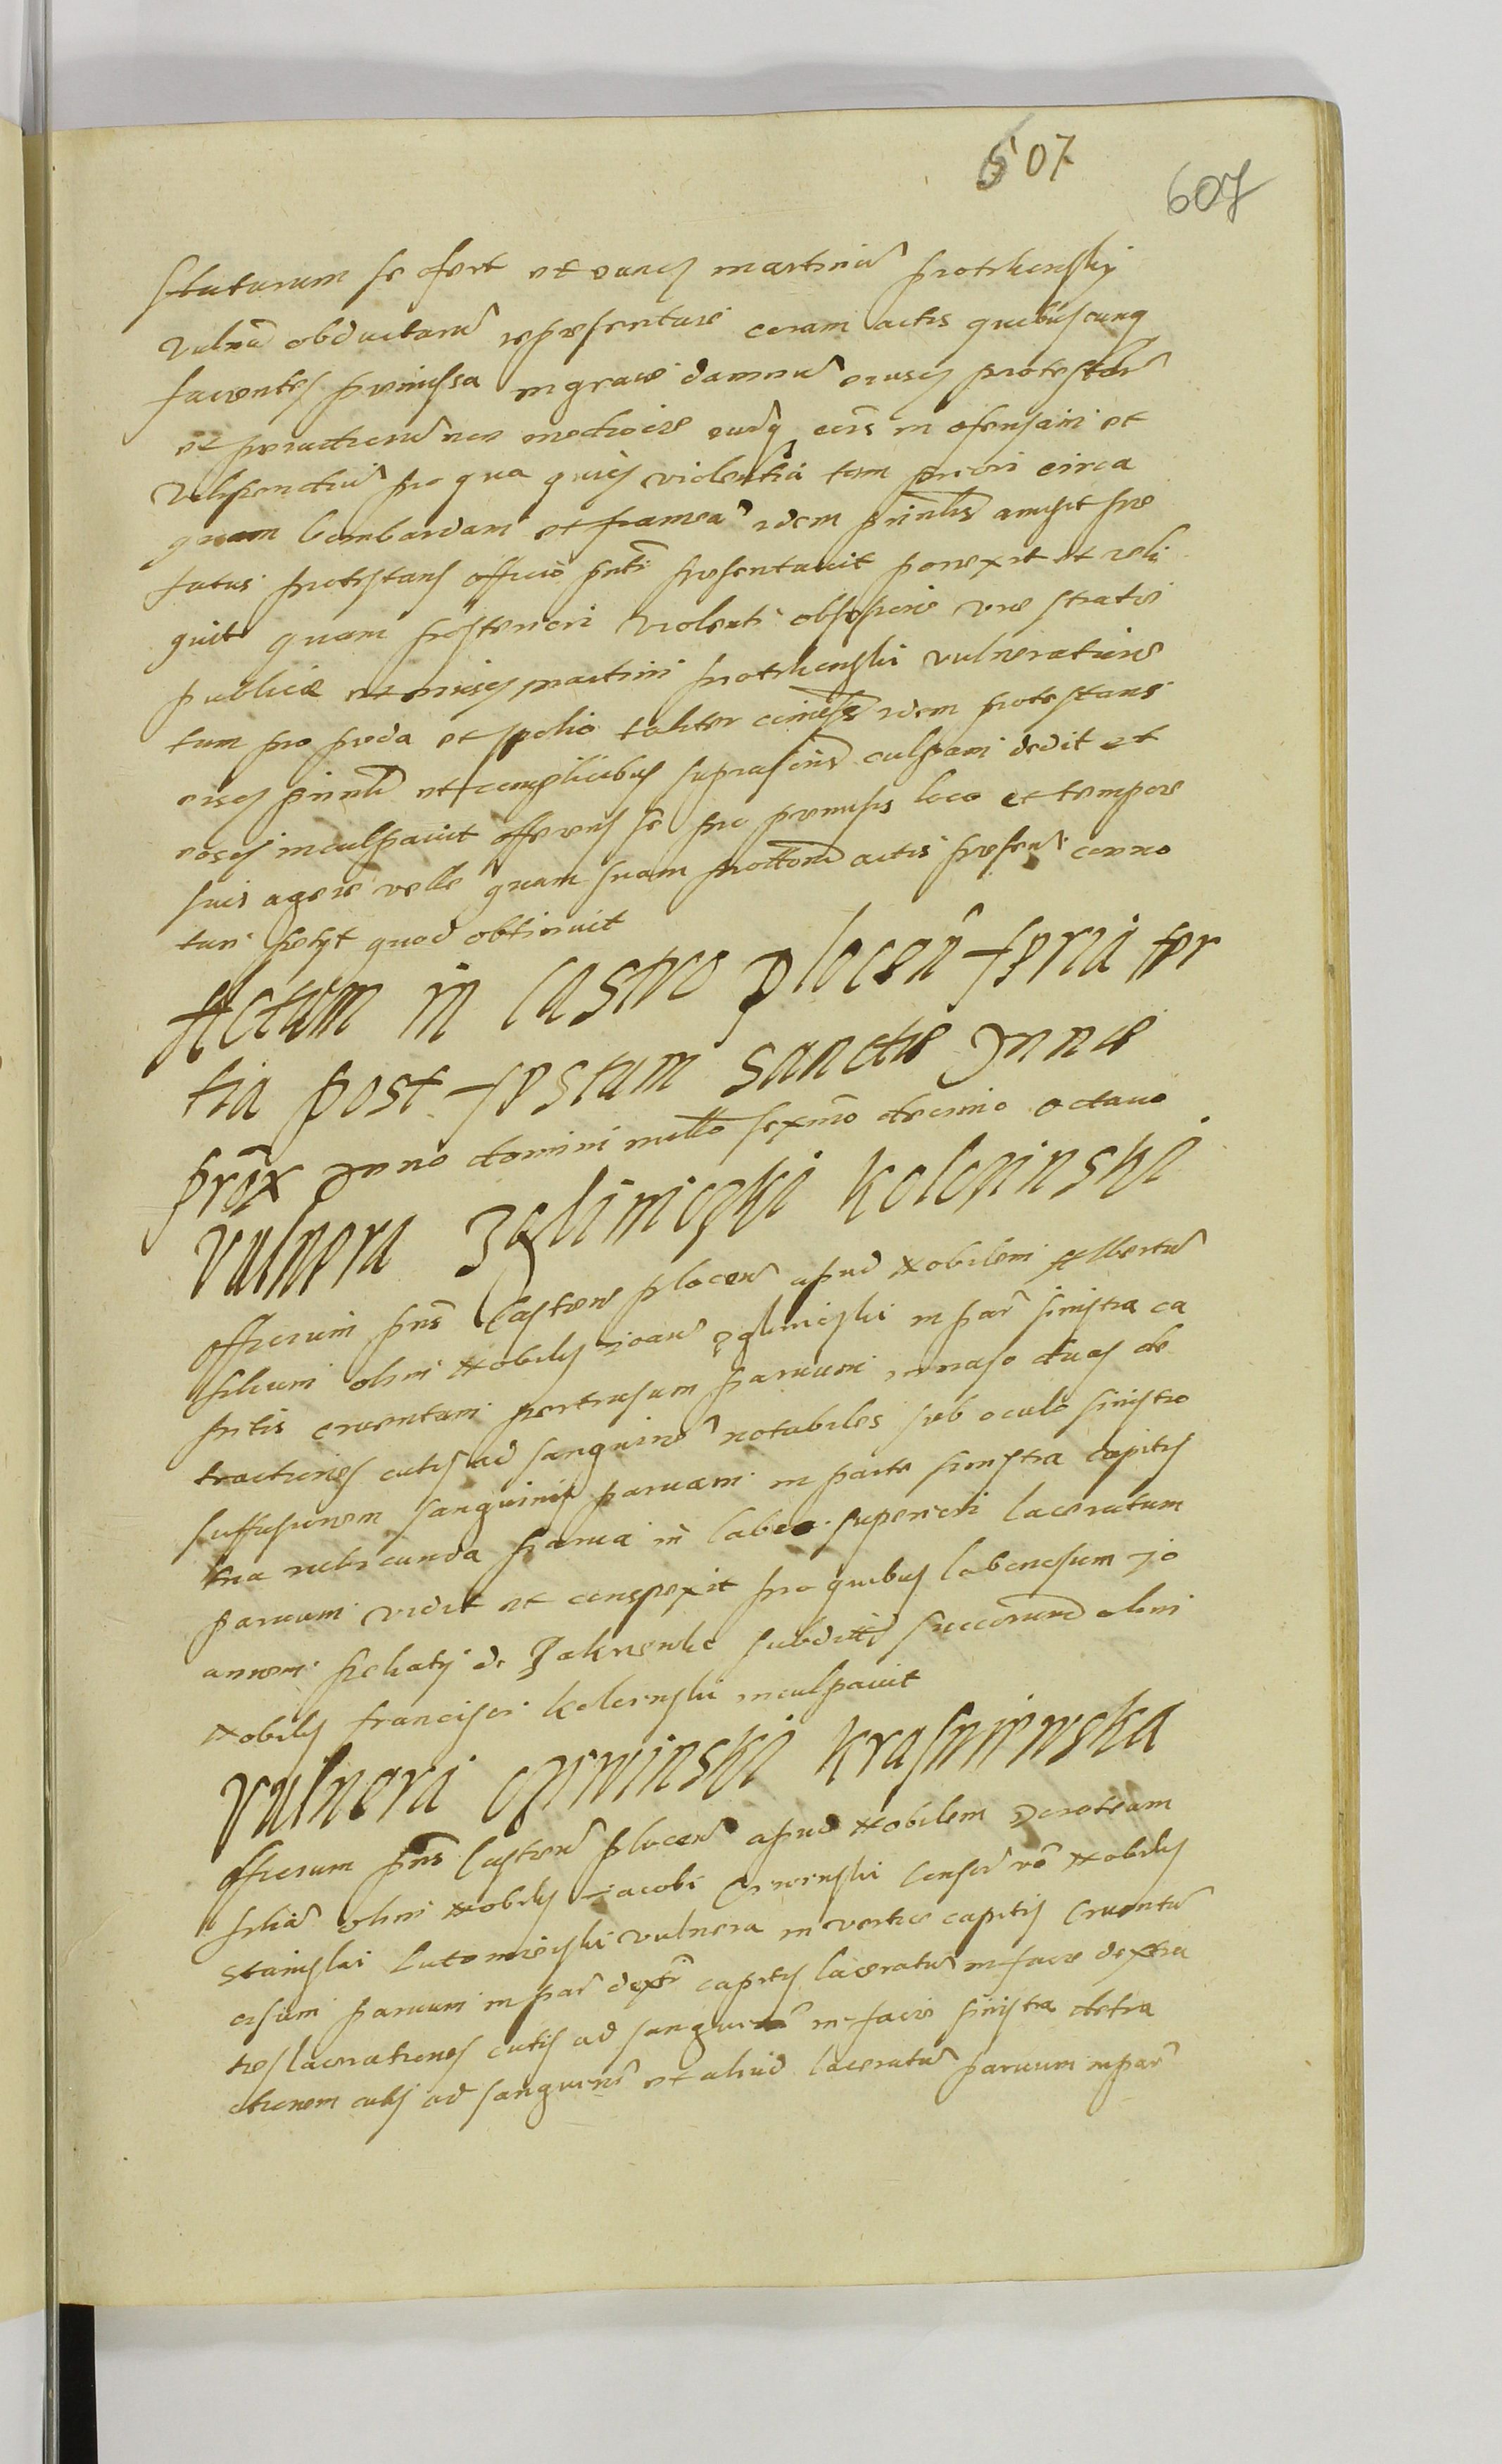 507
607
staturum se ofert et eund martinū protkenski
Vulnā obductarū repræsentare coram actis quibuscunq
facientes præmissa in graue damnū eiusd protestān
et præiudiciū non mediocre eundq eius in ofensam et
Vilipendiū pro qua quid violentia tam priori circa
quam bombardam et frameā idem prinlis amisit præ
fatus protestans officio pnti præsentauit porrexit et reli
quit quam posteriori violenti obsessione viæ stratæ
publicæ et eiusd martini protkenski vulneratione
tum pro præda et spolio taliter comissis idem protestans
eisd prinli et complicibus suprascris culpam dedit et
eosd inculpauit offerens se pro præmissis loco et tempore
suis agere velle quam suam prottōm actis præsent conno
tari petyt quod obtinuit
Actum in Castro plocen feria ter
tia post festum sanctæ Annæ
prox Anno domini millō sexmō decimo octauo
Vulnera zgliniczki kolczinski
Officium pns Castren plocen apud Nobilem Albertū
filium olim Nobilis ioan zgliniczki in par sinistra ca
pitis cruentam pertrusum paruum in naso duas de
tractiones cutis ad sanguinē notabiles sub oculo sinistro
suffusionem sanguinis paruam in parte sinistra capitis
tria rubicunda parua in labeo superiori laceratum
paruum vidit et conspexit pro quibus laboriosum jo
annem de subditū succorum olim
Nobilis francisci kolcinski inculpauit
Vulnera czerwinski krasniewska
Officium pns Castren plocen apud Nobilem Doroteam
filiā olim Nobilis iacobi Czerwinski consor vō Nobilis
Stanislai Lutomirski vulnera in vertice capitis Cruentū
cæsum paruum in par dextr capitis laceratū in facie dextra
tres lacerationes cutis ad sanguinē in facie sinistra detra
ctionem cutis ad sanguinē et aliud laceratū paruum in par